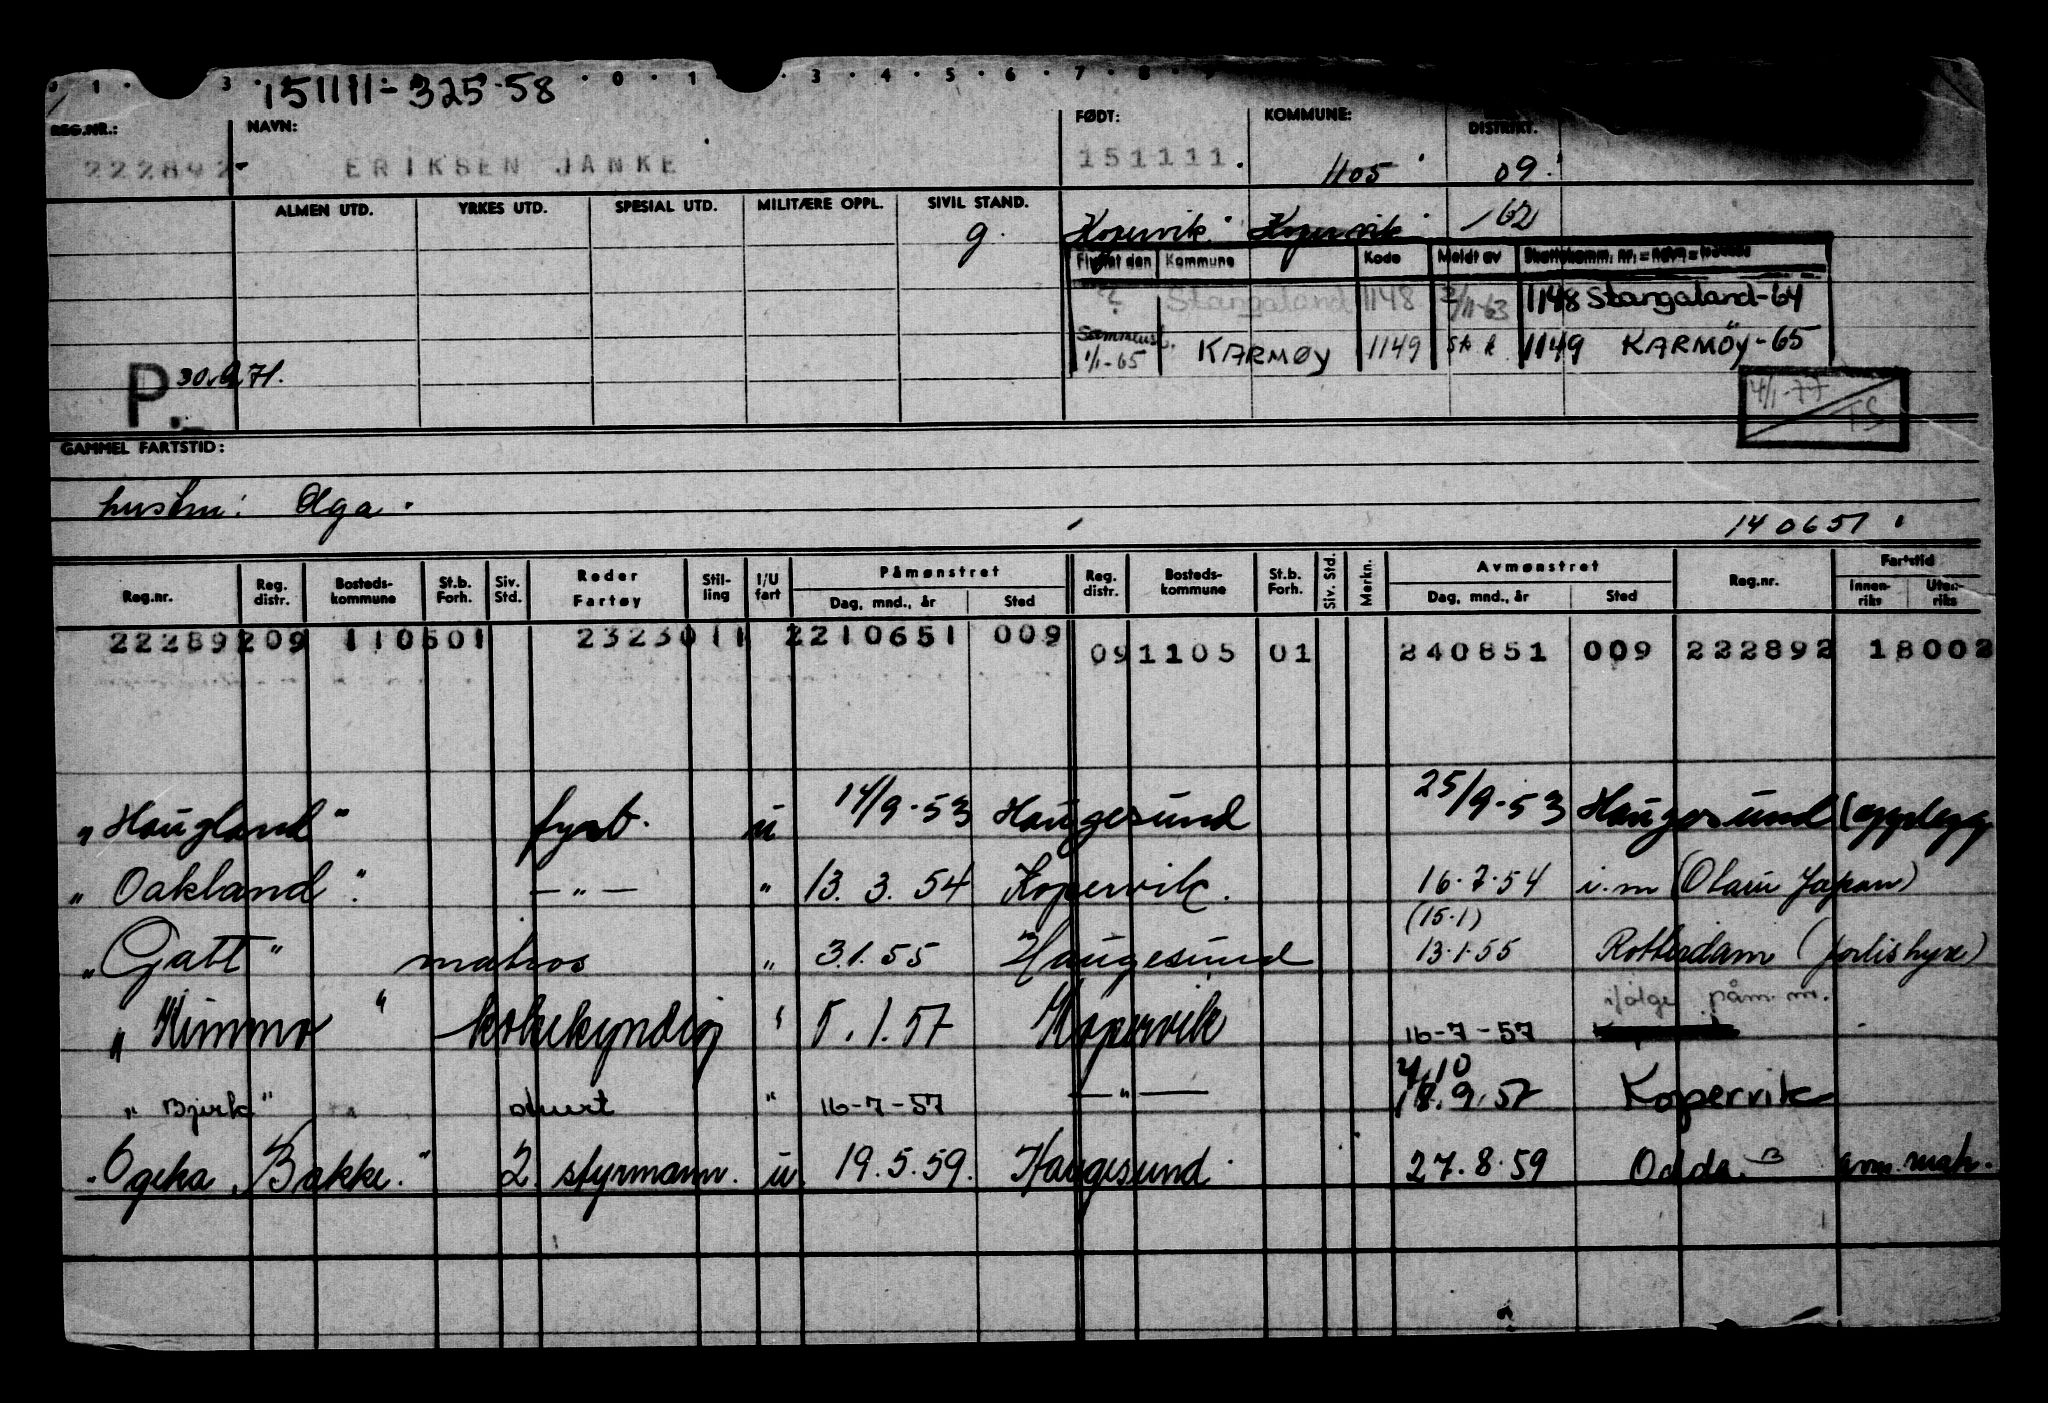 151111-325-58
REG.NR.: NAVN: FØDT: KOMMUNE: DISTRIKT.
222892- ERIKSEN JANKE 151111. 1105 09.
ALMEN UTD. YRKES UTD. SPESIAL UTD. MILITÆRE OPPL. SIVIL STAND.
g. Kopervik Kopervik 62
Flyttet den Kommune Kode Meldt av Skattekomm. nr. = navn =
? Stangaland 1148 2/11-63 1148 Stangaland-64
Sammensl. 1/1-65 KARMØY 1149 1149 KARMÖY-65
P. 30.6.71.
4/1-77 TS
GAMMEL FARTSTID:
hustru: Olga.
140651
Reg.nr. Reg. distr. Bosteds-kommune St.b. Forh. Siv. Std. Reder Fartøy Stil-ling I/U fart Påmønstret Dag, mnd., år Sted Reg. distr. Bosteds-kommune St.b. Forh. Siv. Std. Merkn. Avmønstret Dag, mnd., år Sted Reg.nr. Fartstid Innen-riks Uten-riks
222892 09 110501 2323011 2210651 009 09 1105 01 240851 009 222892 18002
"Haugland" fyrb. u 14/9-53 Haugesund 25/9-53 Haugesund (opplegg
"Oakland". — " — " 13. 3. 54 Kopervik. 16.7.54 i.m (Otaru Japan)
(15.1)
"Gatt" matros " 3.1.55 Haugesund 13.1.55 Rotterdam (forlis hyre)
ifølge påm. m.
"Kimmo" " 5.1.57 Kopervik 16-7-57
4.10
"Bjerk" " " 16-7-57 — " — 18.9.57 Kopervik
"Ogeka Bakke." 2. styrmann. u. 19.5.59. Haugesund. 27.8.59 Odda